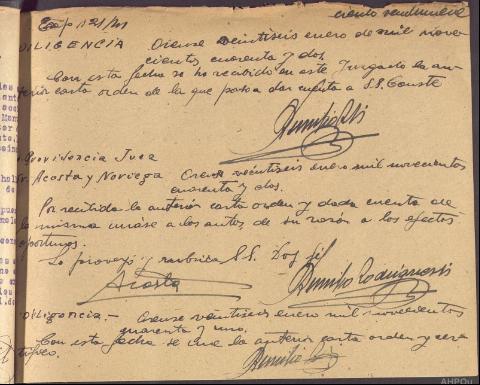 Exp 121/41
ciento veintinueve
DILIGENCIA Orense veintiseis enero de mil nove
cientos cuarenta y dos.
Con esta fecha se ha recibido en este Juzgado la an-
terior carta orden de la que paso a dar cuenta a S.S. Conste
Providencia Juez
Sr. Acosta y Noriega Orense veintiseis enero mil novecientos
cuarenta y dos.
Por recibida la anterior carta orden y dada cuenta de
la misma unase a los autos de su razón a los efectos
oportunos.
Lo proveyó y rubrica S.S. Doy fé
Acosta
Diligencia.- Orense veintiseis enero mil novecientos
cuarenta y uno.
Con esta fecha se une la anterior carta orden y cer
tifico.
AHPOu